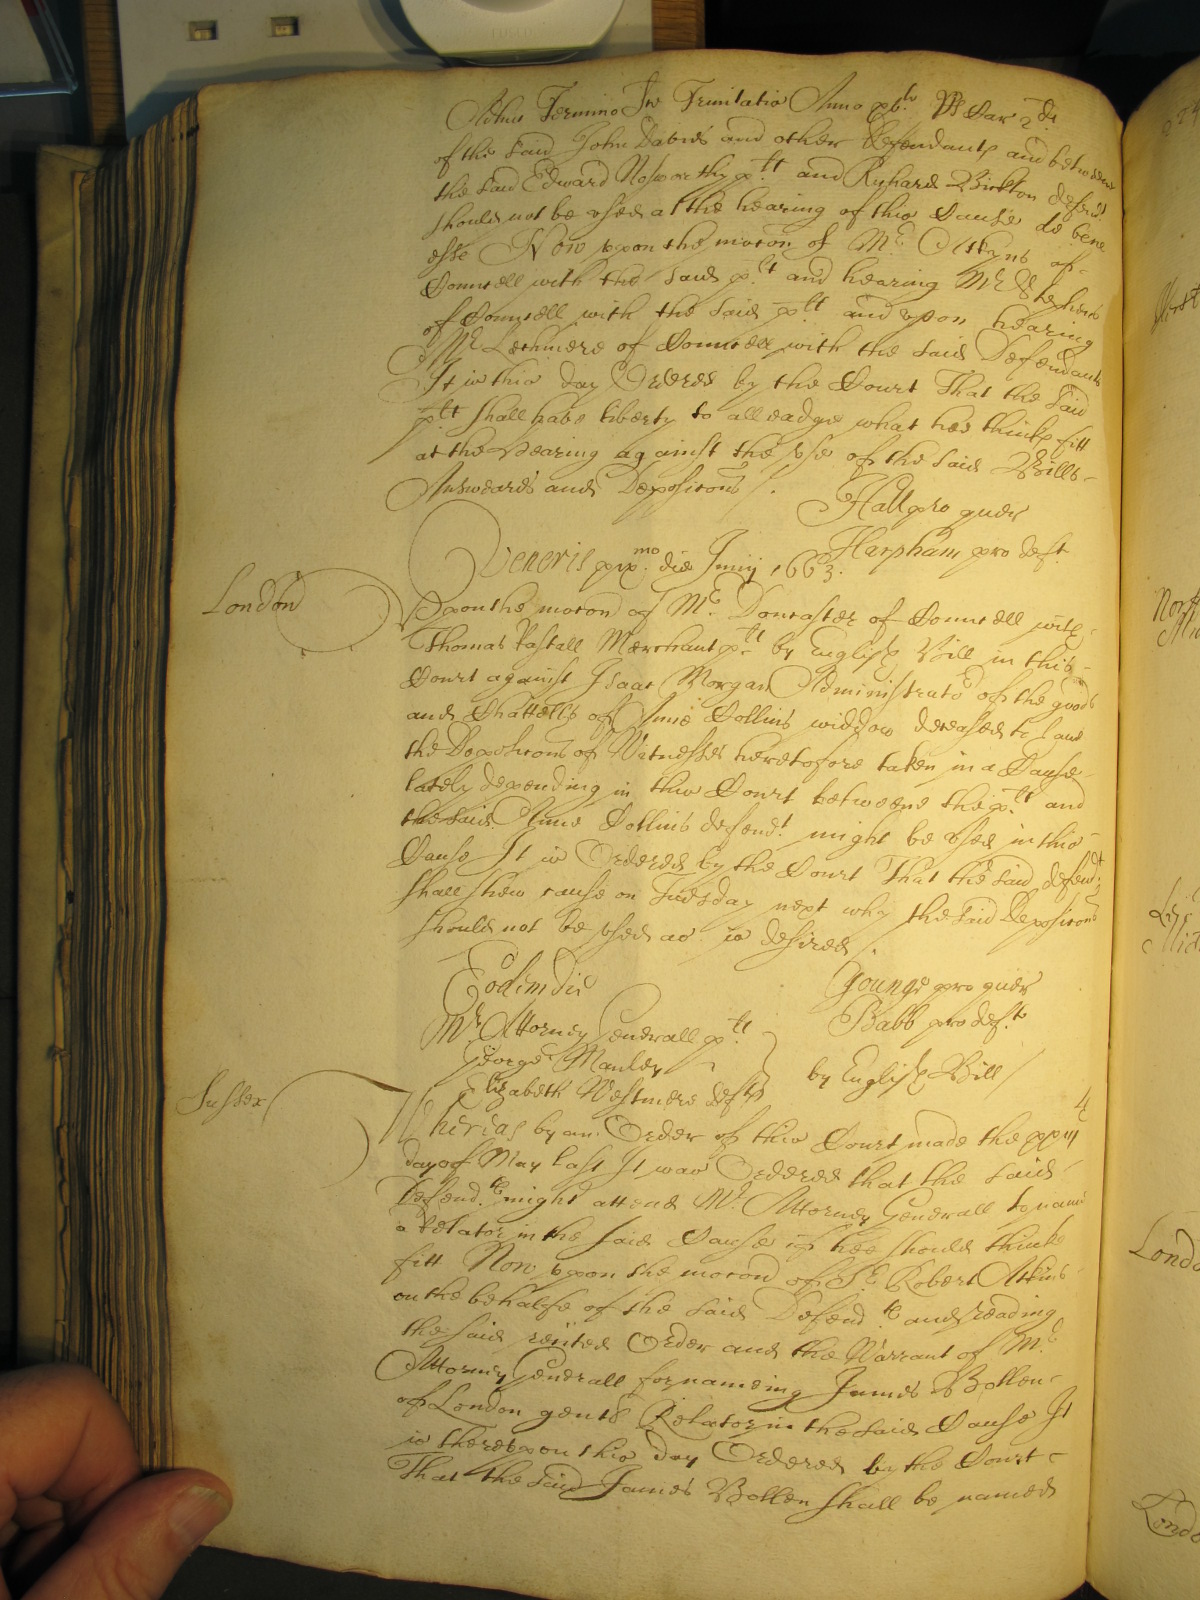 Adhuc Termino Sce Trinitatis Anno xv.to RRs Car 2di
of the said John Davies and other Defendants and betweene
the said Edward Nosworthy p.lt and Richard Bickton defend.t
should not be used at the hearing of this Cause de bene
esse Now upon the mocon of Mr. Atkyns of
Councell with the said p.lt and hearing Mr Stephens
of Councell with the said p.lt and upon hearing
Mr Lechmere of Councell with the said Defendants
It is this day Ordered by the Court That the said
p.lt shall have liberty to alleadge what hee thinks fitt
at the Hearing against the use of the said Bills
Answeares and Deposicons /.
Hall pro quer
Harpham pro deft.
Veneris prx.mo die Junij 1663.
London
Upon the mocon of Mr. Doncaster of Councell with
Thomas Pastall Merchant p.lt by English Bill in this
Court against Isaac Morgan Administrato.r of the goods
and Chattells of Anne Collins widdow deceased to have
the Deposicons of Witnesses heretofore taken in a Cause
lately depending in this Court betweene the p.lt and
the said Anne Collins defend.t might be used in this
Cause It is Ordered by the Court That the said defend.t
shall shew cause on Tuesday next why the said Deposicons
should not be used as is desired.
Younge pro quer
Babb pro def.t
Eodem die
Mr. Attorney Generall p.lt
George Manley
Elizabeth Westmere defts
by English Bill
Sussex
Whereas by an Order of this Court made the xxiiij
day of May last It was Ordered that the said
Defend.ts might attend Mr. Attorney Generall to name
a Relator in the said Cause if hee should thinke
fitt Now upon the mocon of Sr. Robert Atkins
on the behalfe of the said Defend.ts and reading
the said recited Order and the Warrant of Mr.
Attorney Generall for nameing James Bollen
of London gent Relator in the said Cause It
is thereupon this day Ordered by the Court
That the said James Bollen shall be named